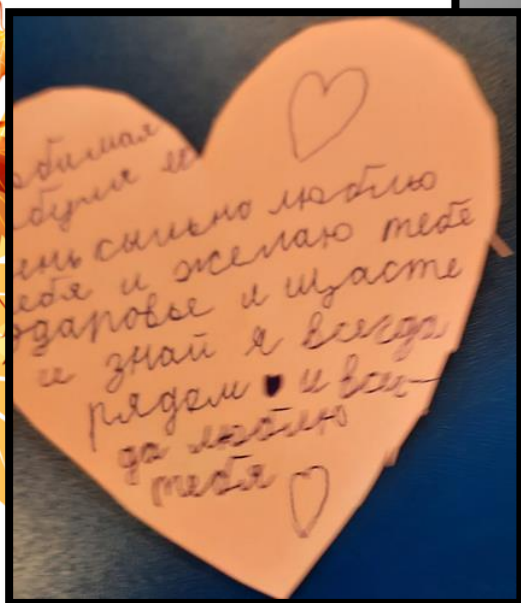 юбимая
буля я
ень сильно люблю
ебя и желаю тебе
здаровье и щасте
и знай я всегда
рядом и всег-
да люблю
тебя